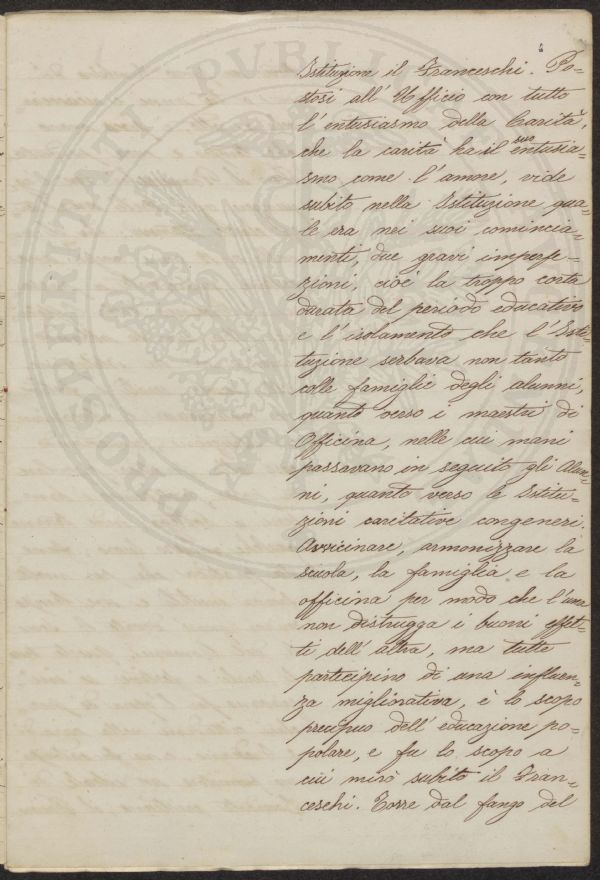 Istituzione il Franceschi. Po=
stosi all' Ufficio con tutto
l'entusiasmo della Carità,
che la carità ha il suo entusia=
smo come l'amore, vide
subito nella Istituzione qua=
le era nei suoi comincia=
menti, due gravi imperfe=
zioni, cioè la troppo corta
durata del periodo educativo
e l'isolamento che l'Isti=
tuzione serbava non tanto
colle famiglie degli alunni,
quanto verso i maestri di
Officina, nelle cui mani
passavano in seguito gli Alun=
ni, quanto verso le Istitu=
zioni caritative congeneri.
Avvicinare, armonizzare la
scuola, la famiglia e la
officina per modo che l'una
non distrugga i buoni effet=
ti dell'altra, ma tutte
participino di una influen=
za migliorativa, è lo scopo
precipuo dell'educazione po=
polare, e fu lo scopo a
cui mirò subito il Fran=
ceschi. Torre dal fango del
PROSPERITATI PVBLI